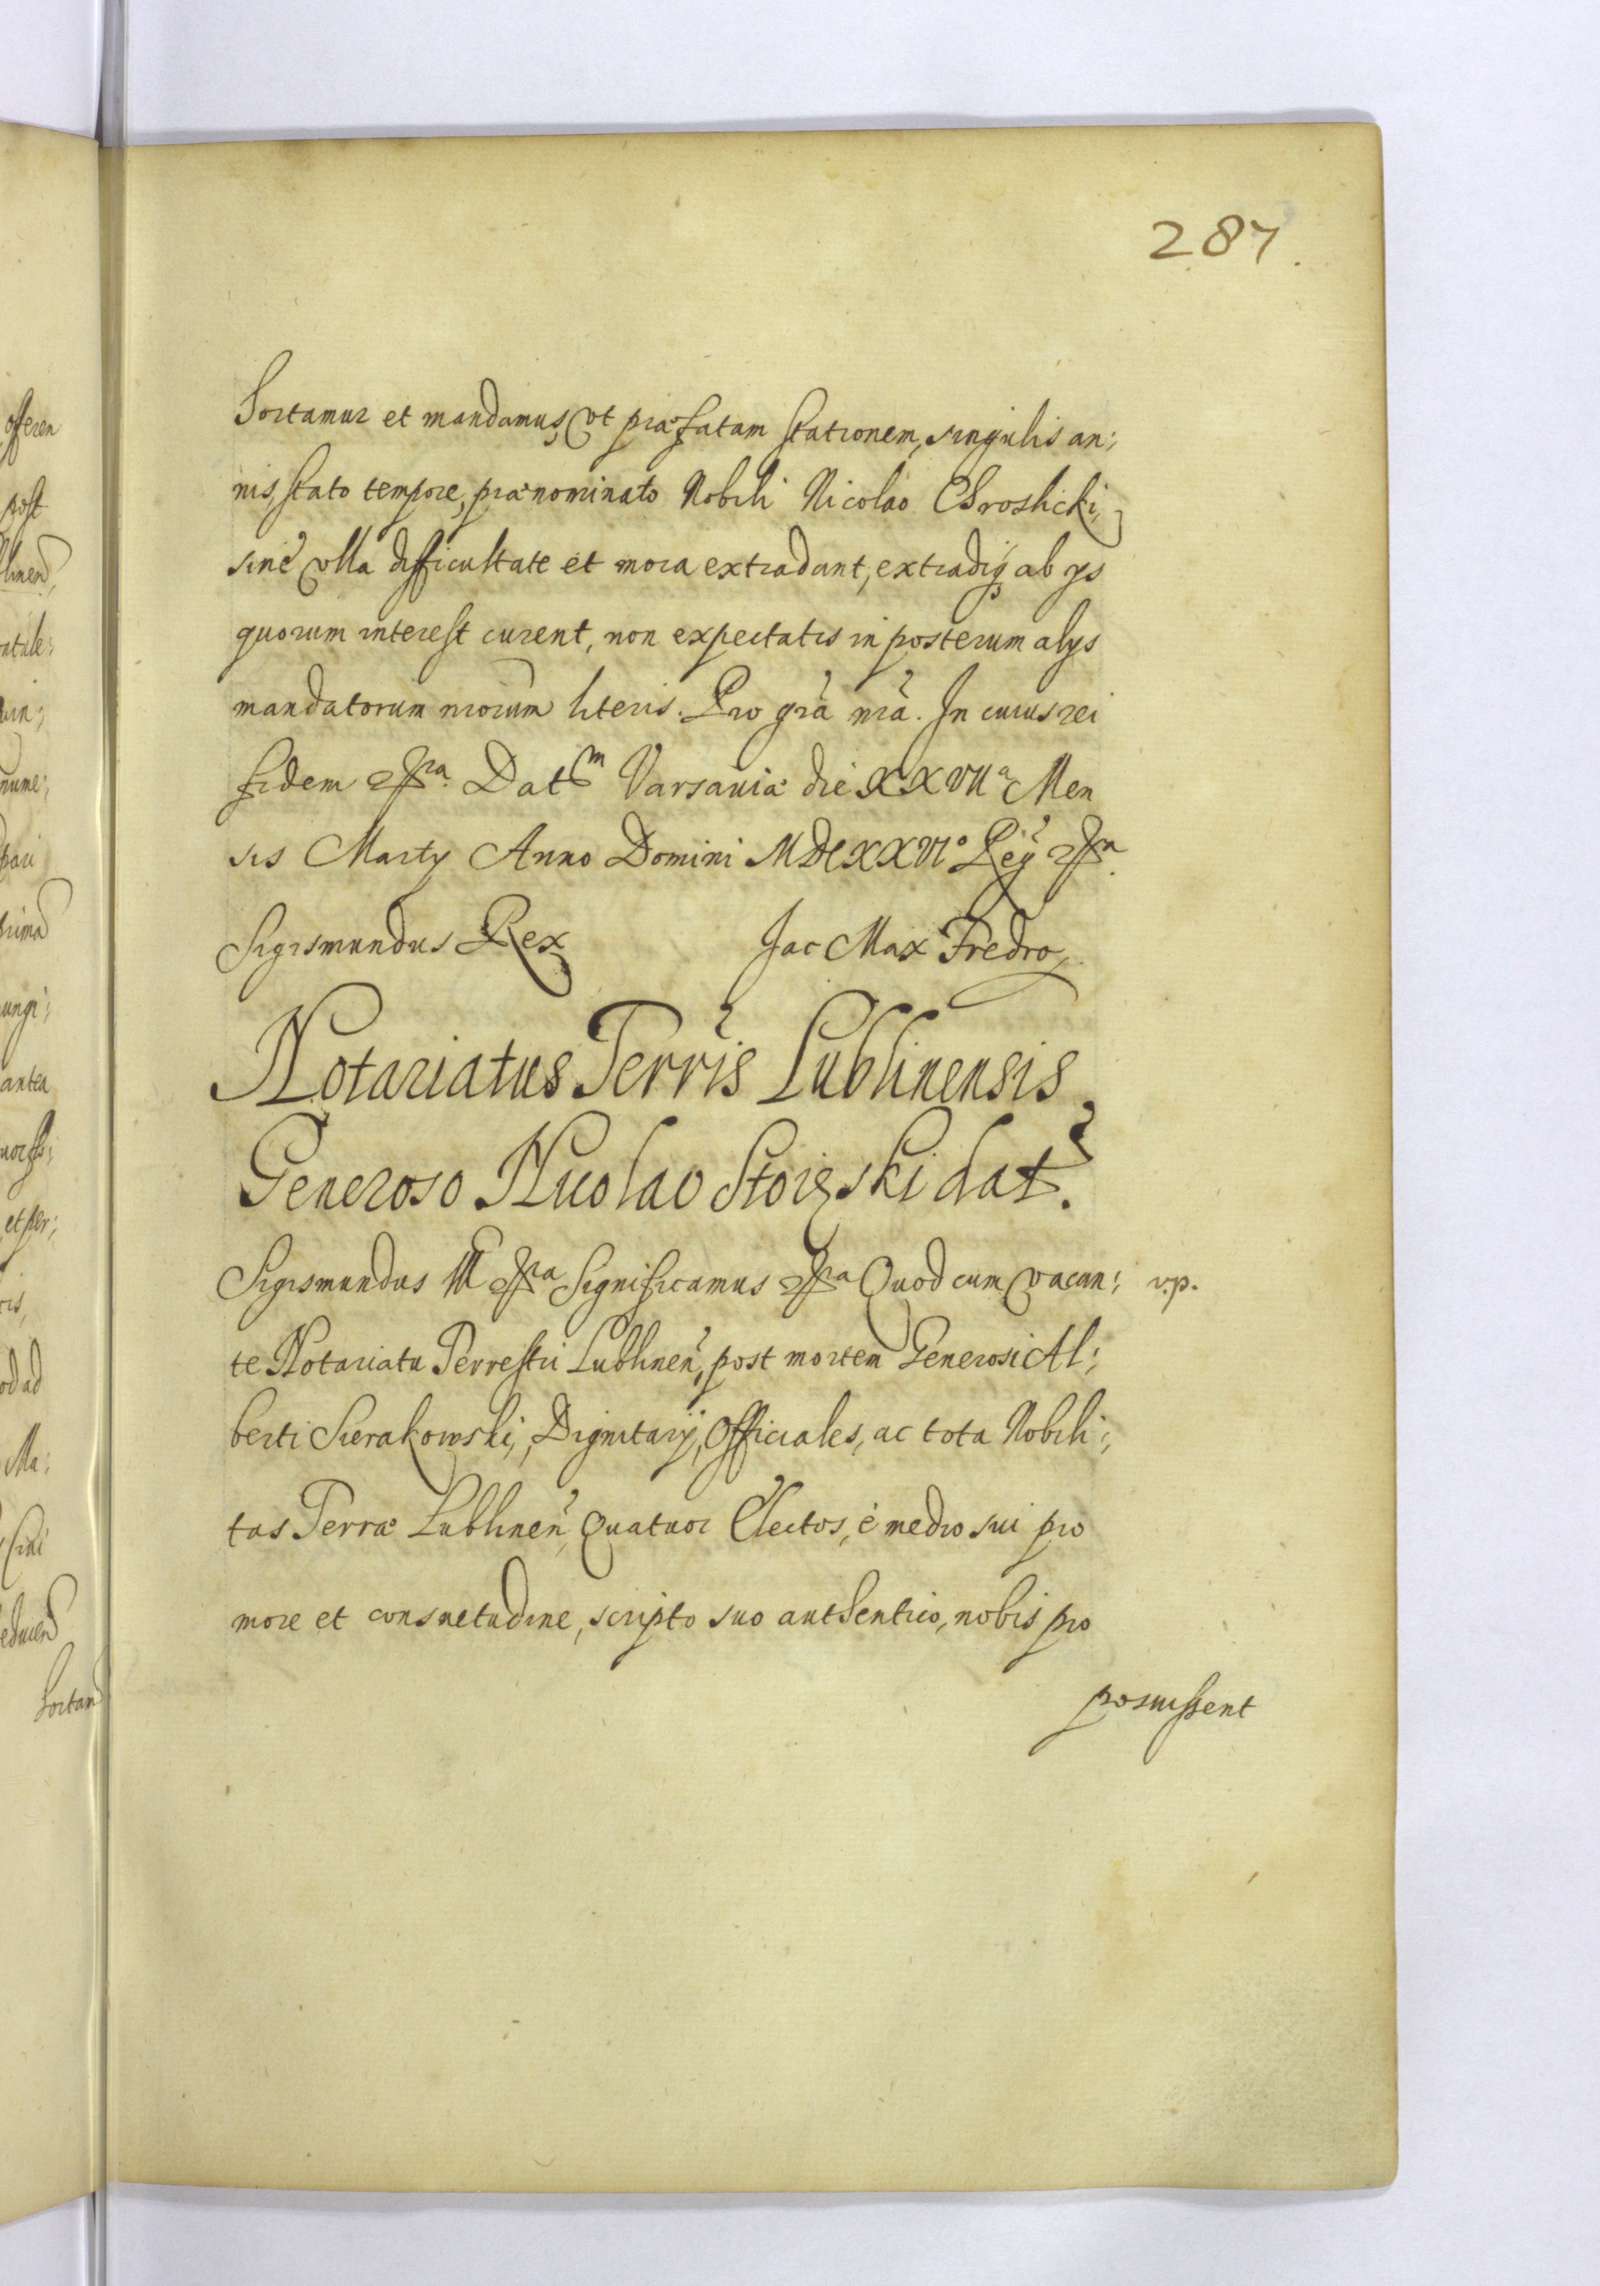 287.
hortamur et mandamus, vt præfatam stationem, singulis an:
nis, stato tempore, prænominato Nobili Nicolao Chroslicki,
sine vlla difficultate et mora extradant, extradiq; ab ijs
quorum interest curent, non expectatis in posterum alijs
mandatorum nrorum literis. Pro gra nra. In cuius rei
fidem etc. Datm Varsauiæ die XXVIIa Men
sis Martij Anno Domini MDCXXVIo Reg
Sigismundus Rex Jac Max Fredro
Notariatus Terris Lublinensis
Generoso Nicolao Stoięski dat.
Sigismundus III etc Significamus etc Quod cum vacan: v.p.
te Notariatu Terrestri Lublinen, post mortem Generosi Al:
berti Sierakowski, Dignitarij, Officiales, ac tota Nobili:
tas Terræ Lublinen, Quatuor Electos, è medio sui pro
more et consuetudine, scripto suo authentico, nobis pro
posuissent
offeren
post
antea
hortam